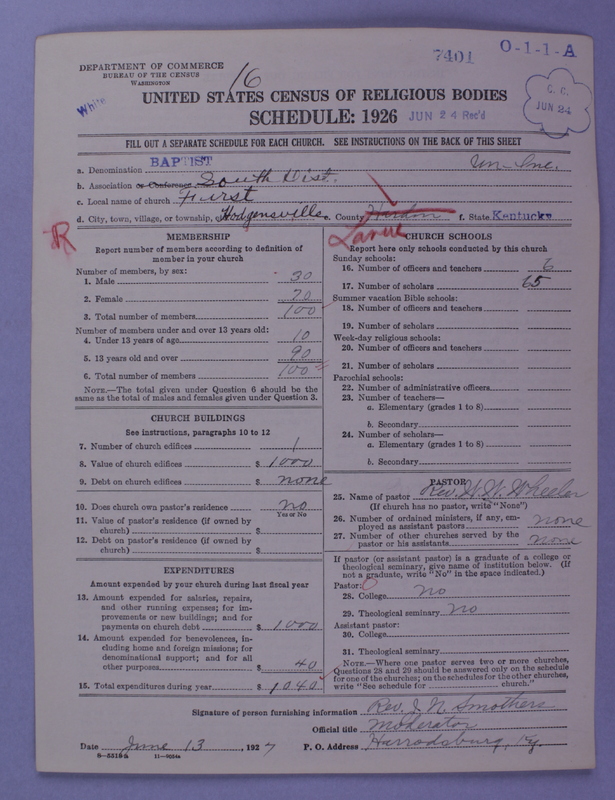 7401 O-1-1-A
DEPARTMENT OF COMMERCE
BUREAU OF THE CENSUS
WASHINGTON
16
White
C. C.
JUN 24
UNITED STATES CENSUS OF RELIGIOUS BODIES
SCHEDULE: 1926 JUN 24 Rec'd
FILL OUT A SEPARATE SCHEDULE FOR EACH CHURCH. SEE INSTRUCTIONS ON THE BACK OF THIS SHEET
a. Denomination BAPTIST Un-Inc.
b. Association or Conference South Dist.
c. Local name of church First
d. City, town, village, or township, Hodgensville e. County Hardin f. State Kentucky
R Larue
MEMBERSHIP
Report number of members according to definition of
member in your church
Number of members, by sex:
1. Male 30
2. Female 70
3. Total number of members 100
Number of members under and over 13 years old:
4. Under 13 years of age 10
5. 13 years old and over 90
6. Total number of members 100
NOTE.—The total given under Question 6 should be the
same as the total of males and females given under Question 3.
CHURCH BUILDINGS
See instructions, paragraphs 10 to 12
7. Number of church edifices 1
8. Value of church edifices $ 1000
9. Debt on church edifices $ none
10. Does church own pastor's residence no
Yes or No
11. Value of pastor's residence (if owned by
church) $
12. Debt on pastor's residence (if owned by
church) $
EXPENDITURES
Amount expended by your church during last fiscal year
13. Amount expended for salaries, repairs,
and other running expenses; for im-
provements or new buildings; and for
payments on church debt $ 1000
14. Amount expended for benevolences, in-
cluding home and foreign missions; for
denominational support; and for all
other purposes $ 40
15. Total expenditures during year $ 1040
CHURCH SCHOOLS
Report here only schools conducted by this church
Sunday schools:
16. Number of officers and teachers 6
17. Number of scholars 65
Summer vacation Bible schools:
18. Number of officers and teachers
19. Number of scholars
Week-day religious schools:
20. Number of officers and teachers
21. Number of scholars
Parochial schools:
22. Number of administrative officers
23. Number of teachers—
a. Elementary (grades 1 to 8)
b. Secondary
24. Number of scholars—
a. Elementary (grades 1 to 8)
b. Secondary
PASTOR
25. Name of pastor Rev. W. W. Wheeler
(If church has no pastor, write "None")
26. Number of ordained ministers, if any, em-
ployed as assistant pastors none
27. Number of other churches served by the
pastor or his assistants none
If pastor (or assistant pastor) is a graduate of a college or
theological seminary, give name of institution below. (If
not a graduate, write "No" in the space indicated.)
Pastor: 0
28. College no
29. Theological seminary no
Assistant pastor:
30. College
31. Theological seminary
NOTE.—Where one pastor serves two or more churches,
Questions 28 and 29 should be answered only on the schedule
for one of the churches; on the schedules for the other churches,
write "See schedule for church."
Signature of person furnishing information Rev. J. N. Smothers
Official title Moderator
Date June 13, 1927 P. O. Address Harrodsburg, Ky.